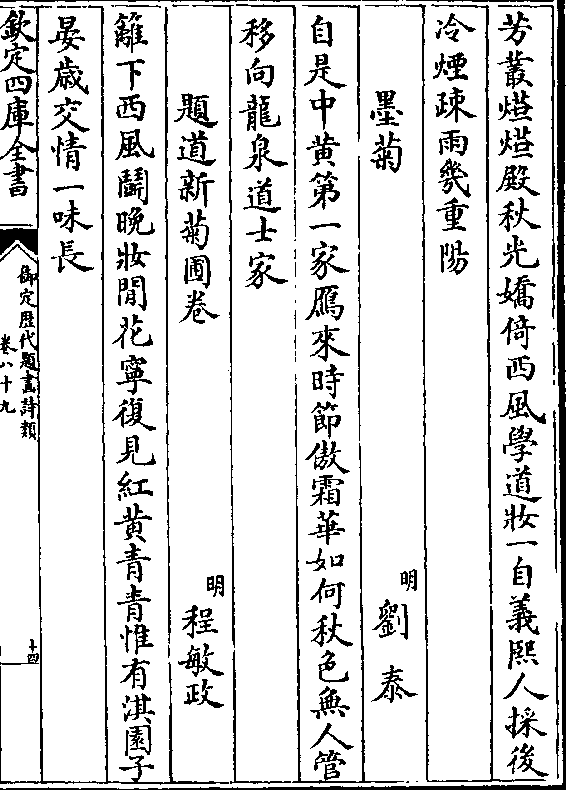 芳叢㷳㷳殿秋光嬌倚西風學道妝一自義熙人採後
冷煙疎雨幾重陽
墨菊
明 劉泰
自是中黄第一家鴈來時節傲霜華如何秋色無人管
移向龍泉道士家
題道新菊圃卷
明 程敏政
籬下西風鬭晚妝閒花寧復見紅黄青青惟有淇園子
晏歲交情一味長
欽定四庫全書
御定歷代題畫詩類
卷八十九
十四